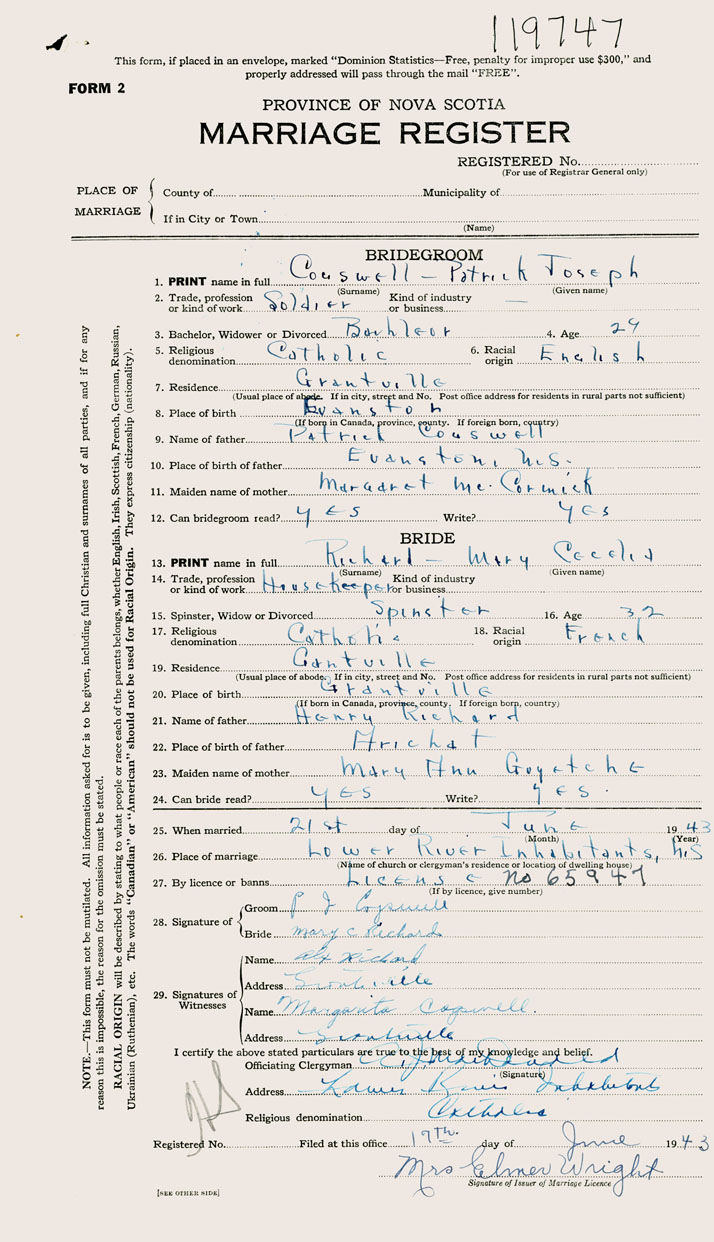 119747
This form, if placed in an envelope, marked "Dominion Statistics—Free, penalty for improper use $300," and
properly addressed will pass through the mail "FREE".
FORM 2
PROVINCE OF NOVA SCOTIA
MARRIAGE REGISTER
REGISTERED No.
(For use of Registrar General only)
PLACE OF MARRIAGE
County of Municipality of
If in City or Town
(Name)
BRIDEGROOM
1. PRINT name in full Couswell — Patrick Joseph
(Surname) (Given name)
2. Trade, profession or kind of work Soldier Kind of industry or business —
3. Bachelor, Widower or Divorced Bachleor 4. Age 29
5. Religious denomination Catholic 6. Racial origin English
7. Residence Grantville
(Usual place of abode. If in city, street and No. Post office address for residents in rural parts not sufficient)
8. Place of birth Evanston
(If born in Canada, province, county. If foreign born, country)
9. Name of father Patrick Couswell
10. Place of birth of father Evanston, N.S.
11. Maiden name of mother Margaret Mc.Cormick
12. Can bridegroom read? YES Write? YES
BRIDE
13. PRINT name in full Richard — Mary Cecelia
(Surname) (Given name)
14. Trade, profession or kind of work Housekeeper Kind of industry or business
15. Spinster, Widow or Divorced Spinster 16. Age 32
17. Religious denomination Catholic 18. Racial origin French
19. Residence Gantville
(Usual place of abode. If in city, street and No. Post office address for residents in rural parts not sufficient)
20. Place of birth Grantville
(If born in Canada, province, county. If foreign born, country)
21. Name of father Henry Richard
22. Place of birth of father Arichat
23. Maiden name of mother Mary Ann Goyetche
24. Can bride read? YES Write? YES.
25. When married 21st day of June 1943
(Month) (Year)
26. Place of marriage Lower River Inhabitants, N.S
(Name of church or clergyman's residence or location of dwelling house)
27. By licence or banns License No 65947
(If by licence, give number)
28. Signature of
Groom P J Copswell
Bride Mary C Richard
29. Signatures of Witnesses
Name Alex Richard
Address Grantville
Name Margarita Copwell.
Address Grantville
I certify the above stated particulars are true to the best of my knowledge and belief.
Officiating Clergyman
(Signature)
Address Lower River Inhabitants
Religious denomination Catholic
Registered No. Filed at this office 17th. day of June 1943
Mrs Elmer Wright
Signature of Issuer of Marriage Licence
[SEE OTHER SIDE]
NOTE.—This form must not be mutilated. All information asked for is to be given, including full Christian and surnames of all parties, and if for any
reason this is impossible, the reason for the omission must be stated.
RACIAL ORIGIN will be described by stating to what people or race each of the parents belongs, whether English, Irish, Scottish, French, German, Russian,
Ukrainian (Ruthenian), etc. The words "Canadian" or "American" should not be used for Racial Origin. They express citizenship (nationality).